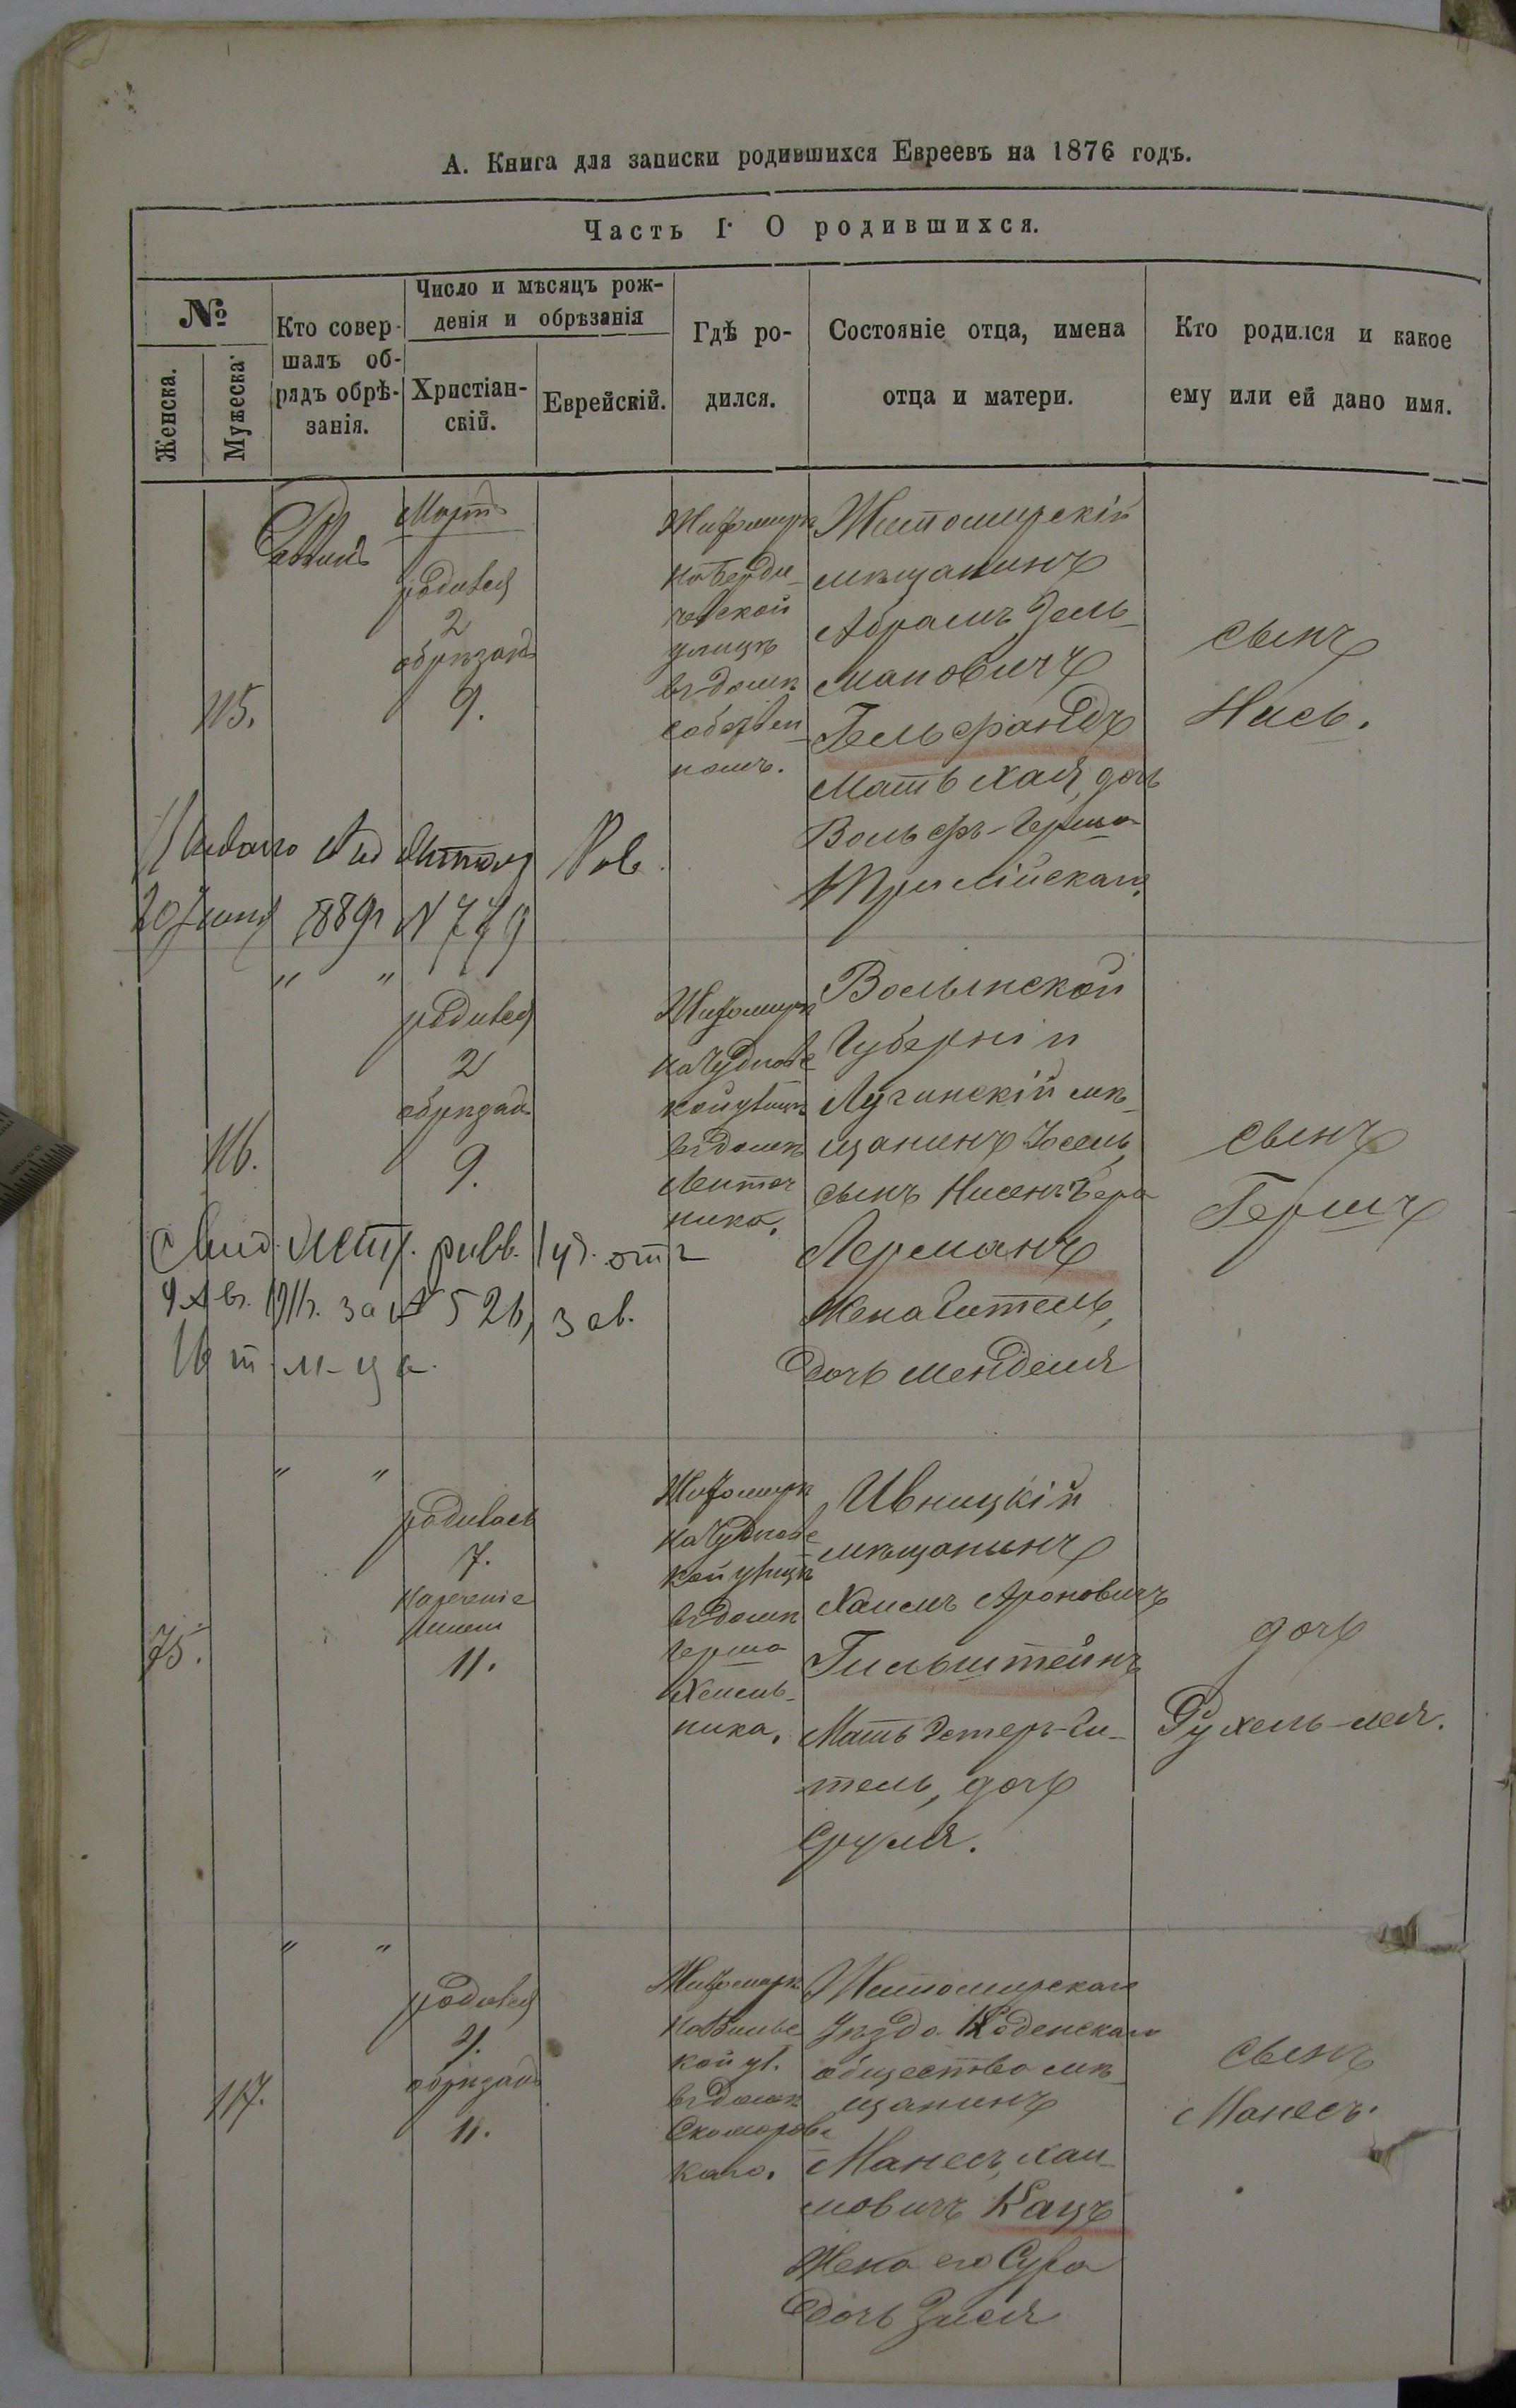 А. Книга для записки родившихся Евреевъ на 1876 годъ.
Часть I. О родившихся.
№
Женска.
Мужеска.
Кто совер-
шалъ об-
рядъ обрѣ-
занія.
Число и мѣсяцъ рож-
денія и обрѣзанія
Христіан-
скій.
Еврейскій.
Гдѣ ро-
дился.
Состояніе отца, имена
отца и матери.
Кто родился и какое
ему или ей дано имя.
115.
Мартъ
родился
2
обрѣзанъ
9.
Житомирѣ
на Берди-
чевской
улицѣ
въ домѣ
собствен-
номъ.
Житомирскій
мѣщанинъ
Абрамъ Зель-
мановичъ
Гельфандъ
Мать Хая, дочь
Вольфъ-Герша
сынъ
Нисъ.
20 Іюня 1889 г N 779
116.
" "
родился
2
обрѣзанъ
9.
Житомирѣ
на Чудновс-
кой улицѣ
въ домѣ
Волынской
Губерніи
Лугинскій мѣ-
щанинъ Іосель,
сынъ Нисенъ Бера
Лерманъ
Жена Гитель,
дочь Менделя
сынъ
Гершъ
за № 526,
75.
" "
родилась
7.
нареченіе
имени
11.
Житомирѣ
на Чудновс-
кой улицѣ
въ домѣ
Герша
Хмель-
ника.
Ивницкій
мѣщанинъ
Хаимъ Ароновичъ
Гильштейнъ
Мать Эстеръ-Ги-
тель, дочь
Сруля.
дочь
Рухель-лея.
117.
" "
родился
4.
обрѣзанъ
11.
Житомирѣ
кой ул.
въ домѣ
Скоморовс
каго.
Житомирскаго
Уѣзда Коденскаго
общества мѣ-
щанинъ
Манесъ Хаи-
мовичъ Кацъ
Жена его Сура
дочь Зися
сынъ
Манесъ.